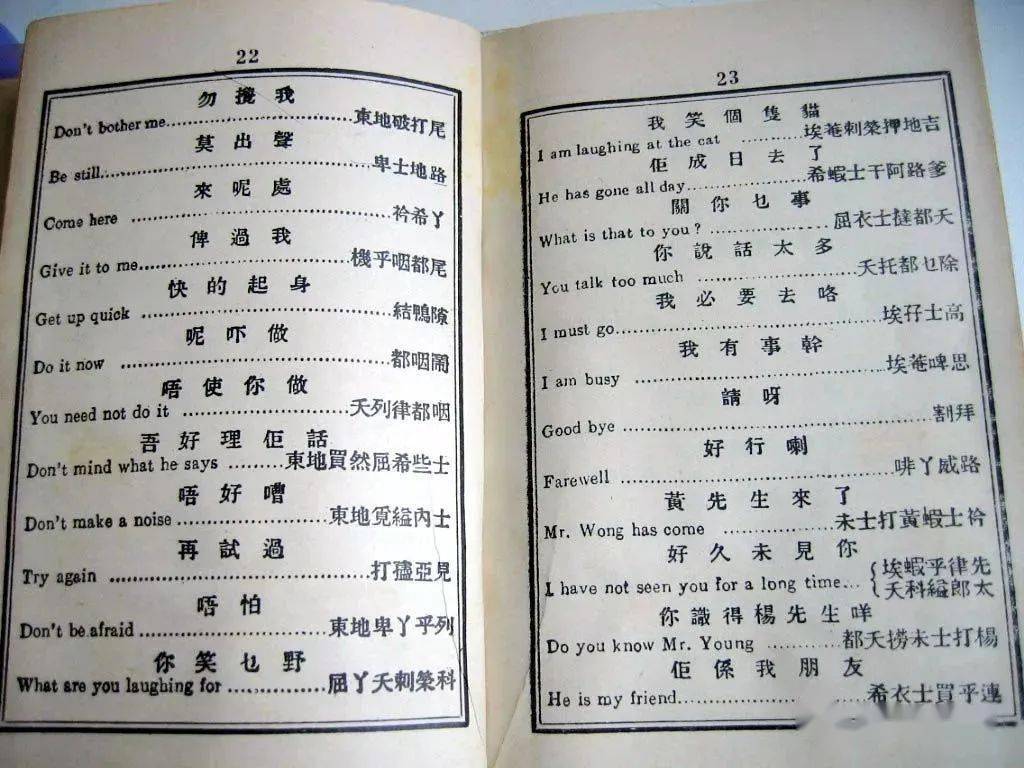 22
勿攪我
Don't bother me..................東地破打尾
莫出聲
Be still..................卑士地路
來呢處
Come here ..................衿希丫
俾過我
Give it to me..................機乎咽都尾
快的起身
Get up quick ..................結鴨隙
呢吓做
Do it now ..................都咽鬧
唔使你做
You need not do it ..................夭列律都咽
吾好理佢話
Don't mind what he says .........東地買然屈希些士
唔好嘈
Don't make a noise..................東地覓縊內士
再試過
Try again ..................打亞見
唔怕
Don't be afraid..................東地卑丫乎列
你笑乜野
What are you laughing for ............屈丫夭剌榮科
23
我笑個隻貓
I am laughing at the cat ............埃菴剌榮押地吉
佢成日去了
He has gone all day............希蝦士干阿路爹
關你乜事
What is that to you? ..................屈衣士撻都夭
你說話太多
You talk too much ..................夭托都乜除
我必要去咯
I must go..................埃孖士高
我有事幹
I am busy ..................埃菴啤思
請呀
Good bye ..................割拜
好行喇
Farewell ..................啡丫威路
黃先生來了
Mr. Wong has come ............未士打黃蝦士衿
好久未見你
I have not seen you for a long time...{埃蝦乎律先
夭科縊郎太
你識得楊先生咩
Do you know Mr. Young ............都夭撈未士打楊
佢係我朋友
He is my friend..................希衣士買乎連